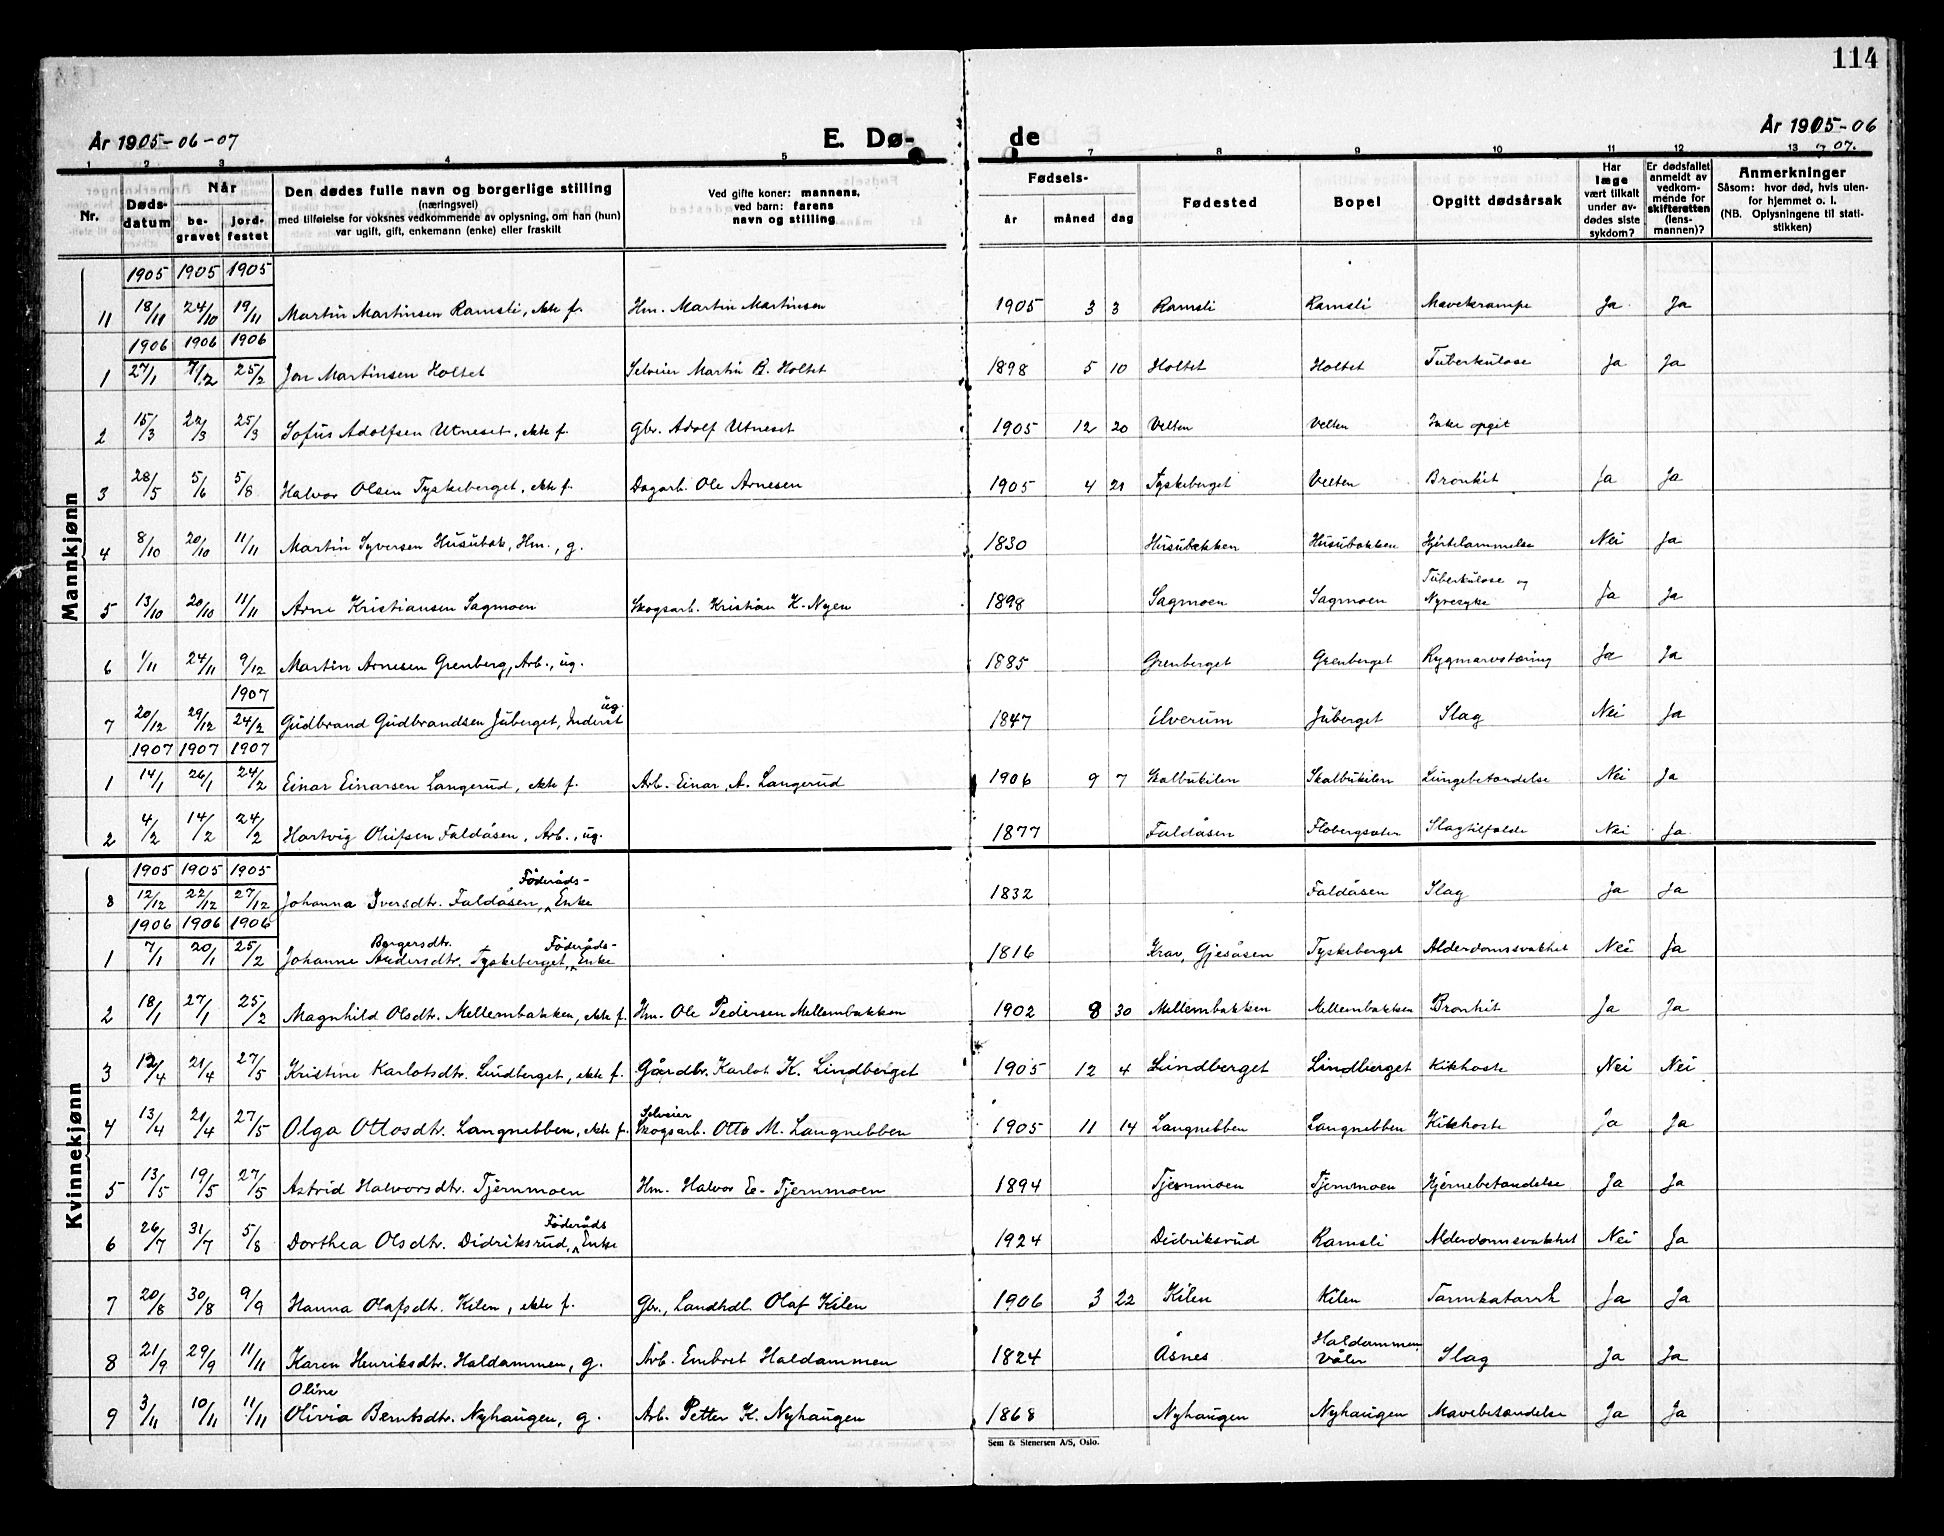 114
År 1905-06-07
E. Dø-
de
År 1905-06
07.
1 2 3 4 5 7 8 9 10 11 12 13
Nr. Døds-datum Når be-gravet jord-festet Den dødes fulle navn og borgerlige stilling (næringsvei) med tilføielse for voksnes vedkommende av oplysning, om han (hun) var ugift, gift, enkemann (enke) eller fraskilt Ved gifte koner: mannens, ved barn: farens navn og stilling Fødsels- år måned dag Fødested Bopel Opgitt dødsårsak Har læge vært tilkalt under av-dødes siste sykdom? Er dødsfallet anmeldt av vedkom-mende for skifteretten (lens-mannen)? Anmerkninger Såsom: hvor død, hvis uten-for hjemmet o. l. (NB. Oplysningene til stati-stikken)
Mannkjønn
1905 1905 1905
11 18/11 24/10 19/11 Martin Martinsen Ramsli, ekte f. Hm. Martin Martinsen 1905 3 3 Ramsli Ramsli Mavekrampe Ja Ja
1906 1906 1906
1 27/1 7/2 25/2 Jon Martinsen Holtet Selveier Martin B. Holtet 1898 5 10 Holtet Holtet Tuberkulose Ja Ja
2 15/3 22/3 25/3 Sofus Adolfsen Utneset, ekte f. Gbr. Adolf Utneset 1905 12 20 Velten Velten Ikke opgit
3 28/5 5/6 5/8 Halvor Olsen Tyskeberget, ekte f. Dagarb. Ole Arnesen 1905 4 21 Tyskeberget Velten Bronkit Ja Ja
4 8/10 20/10 11/11 Martin Syversen Husubak, Hm., g. 1830 Husubakken Husubakken Hjertelammelse Nei Ja
5 13/10 20/10 11/11 Arne Kristiansen Sagmoen Skogsarb. Kristian K. Nyen 1898 Sagmoen Sagmoen Tuberkulose og Nyresyke Ja Ja
6 1/11 24/11 9/12 Martin Arnesen Grenberg, Arb., ug. 1885 Grenberget Grenberget Rygmarvstæring Ja Ja
1907
7 20/12 29/12 24/2 Gudbrand Gudbrandsen Juberget, Inderst ug. 1847 Elverum Juberget Slag Nei Ja
1907 1907 1907
1 14/1 26/1 24/2 Einar Einarsen Langerud, ekte f. Arb. Einar A. Langerud 1906 9 7 Skalbukilen Skalbukilen Lungebetendelse Nei Ja
2 4/2 14/2 24/2 Hartvig Olufsen Faldåsen, Arb., ug. 1877 Faldåsen Flobergseter Slagtilfelde Nei Ja
Kvinnekjønn
1905 1905 1905
8 12/12 22/12 27/12 Johanna Iversdtr. Faldåsen, Föderåds-Enke 1832 Faldåsen Slag Ja Ja
1906 1906 1906
1 7/1 20/1 25/2 Johanne Borgersdtr. Andersdtr. Tyskeberget, Föderåds-Enke 1816 Krav, Gjesåsen Tyskeberget Alderdomssvakhet Nei Ja
2 18/1 27/1 25/2 Magnhild Olsdtr. Mellembakken, ekte f. Hm. Ole Pedersen Mellembakken 1902 8 30 Mellembakken Mellembakken Bronkit Ja Ja
3 12/4 21/4 27/5 Kristine Karlotsdtr. Lindberget, ekte f. Gårdbr. Karlot K. Lindberget 1905 12 4 Lindberget Lindberget Kikhoste Nei Nei
4 13/4 21/4 27/5 Olga Ottosdtr. Langnebben, ekte f. Selveier Skogsarb. Otto M. Langnebben 1905 11 14 Langnebben Langnebben Kikhoste Ja Ja
5 13/5 19/5 27/5 Astrid Halvorsdtr. Tjernmoen Hm. Halvor E. Tjernmoen 1894 Tjernmoen Tjernmoen Hjernebetendelse Ja Ja
6 26/7 31/7 5/8 Dorthea Olsdtr. Didriksrud, Föderåds Enke 1924 Didriksrud Ramsli Alderdomssvakhet Nei Ja
7 20/8 30/8 9/9 Hanna Olafsdtr. Kilen, ekte f. Gbr., Landhdl. Olaf Kilen 1906 3 22 Kilen Kilen Tarmkatarrh Ja Ja
8 21/9 29/9 11/11 Karen Henriksdtr. Haldammen, g. Arb. Embret Haldammen 1824 Åsnes Haldammen Våler Slag Ja Ja
9 3/11 10/11 11/11 Oline Olivia Berntsdtr. Nyhaugen, g. Arb. Petter K. Nyhaugen 1868 Nyhaugen Nyhaugen Mavebetendelse Ja Ja
Sem & Stenersen A/S, Oslo.